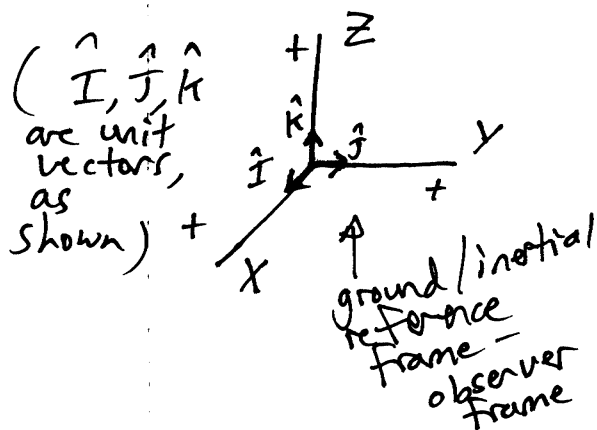 + Z
( Î, Ĵ, K̂
are unit
vectors,
as
shown)
K̂
Ĵ
Î
Y
+
+
X
ground/inertial
reference
frame –
observer
frame